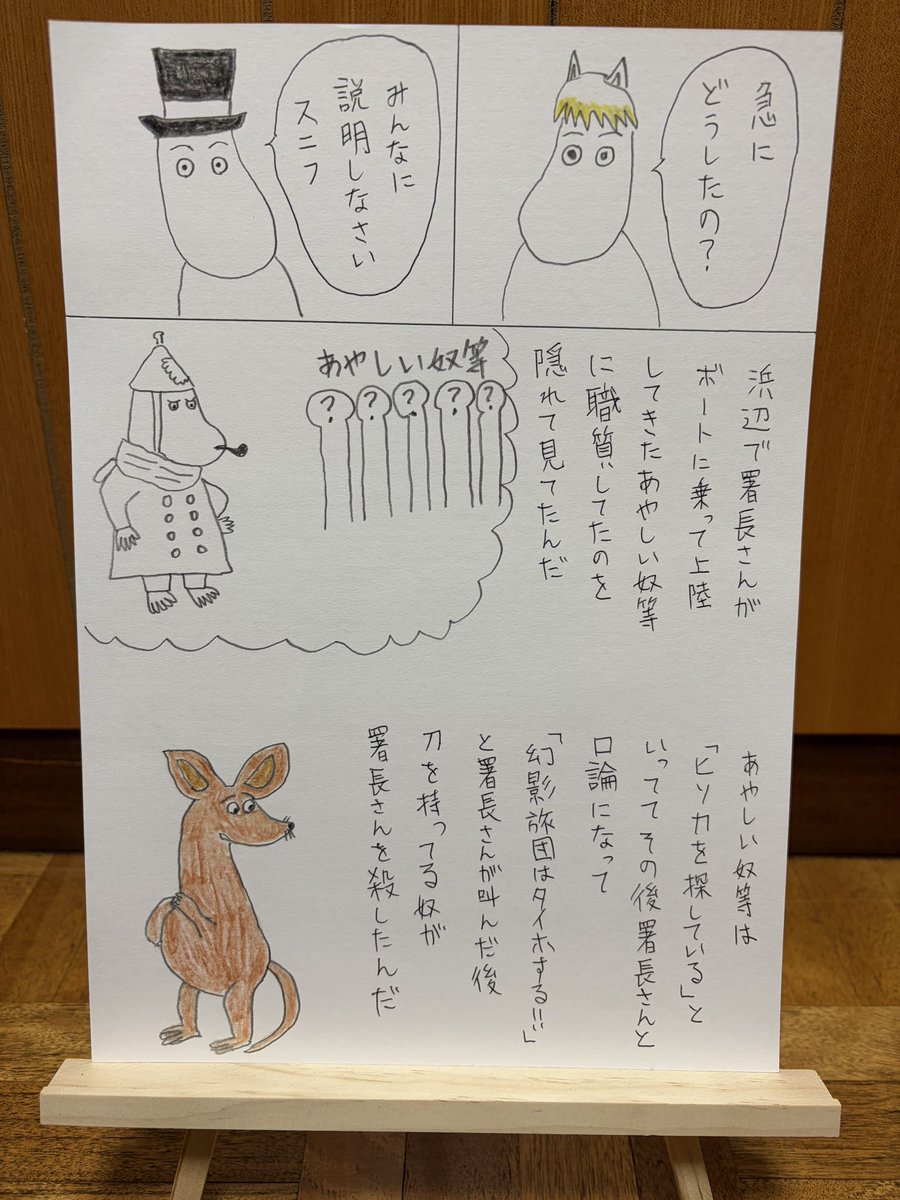 急に
どうしたの?
みんなに
説明しなさい
スニフ
浜辺で署長さんが
ボートに乗って上陸
してきたあやしい奴等
に職質してたのを
隠れて見てたんだ
あやしい奴等
? ? ? ? ?
あやしい奴等は
「ヒソカを探している」と
いっててその後署長さんと
口論になって
「幻影旅団はタイホする!!」
と署長さんが叫んだ後
刀を持ってる奴が
署長さんを殺したんだ